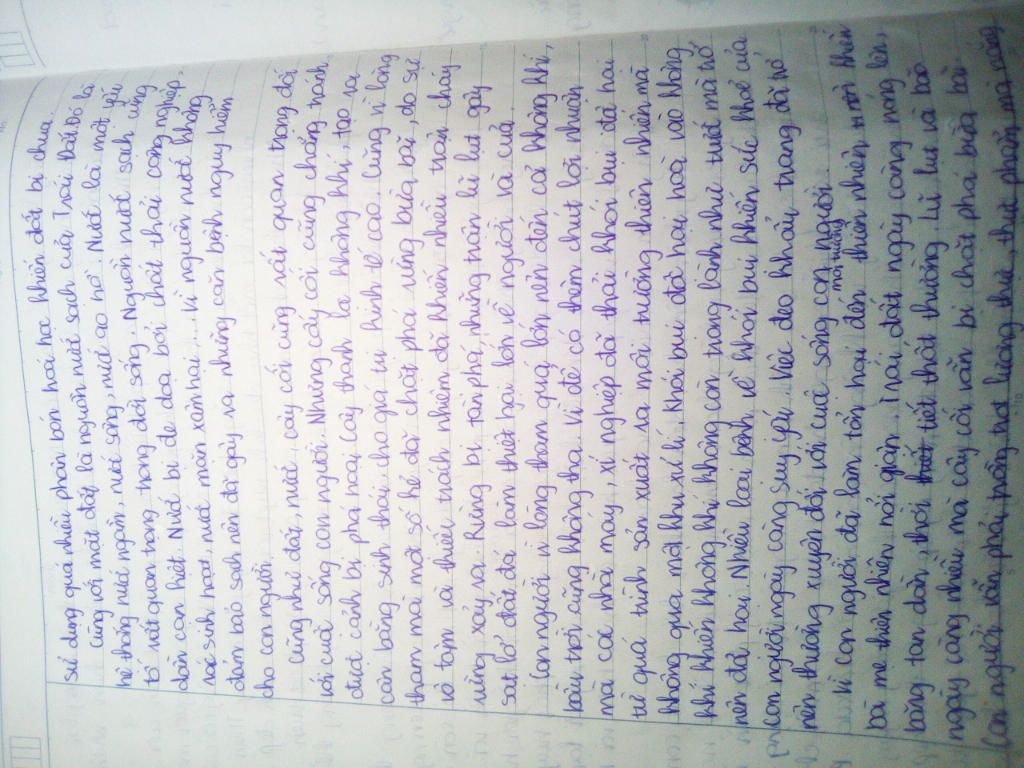 sử dụng quá nhiều phân bón hoá học khiến đất bị chua.
Cùng với mặt đất là nguồn nước sạch của Trái Đất. Đó là
hệ thống nước ngầm, nước sông, nước ao hồ. Nước là một yếu
tố rất quan trọng trong đời sống. Nguồn nước sạch cũng
dần cạn kiệt. Nước bị đe doạ bởi chất thải công nghiệp,
rác sinh hoạt, nước mặn xâm hại,... Vì nguồn nước không
đảm bảo sạch nên đã gây ra những căn bệnh nguy hiểm
cho con người.
Cũng như đất, nước, cây cối cũng rất quan trọng đối
với cuộc sống con người. Những cây cối cũng chẳng tránh
được cảnh bị phá hoại. Cây thanh lọc không khí, tạo ra
cân bằng sinh thái, cho giá trị kinh tế cao. Cũng vì lòng
tham mà một số kẻ đã chặt phá rừng bừa bãi, do sự
vô tâm và thiếu trách nhiệm đã khiến nhiều trận cháy
rừng xảy ra. Rừng bị tàn phá, những trận lũ lụt gây
sạt lở đất đã làm thiệt hại lớn về người và của.
Con người vì lòng tham quá lớn nên đến cả không khí,
bầu trời cũng không tha. Vì để có thêm chút lợi nhuận
mà các nhà máy, xí nghiệp đã thải khói bụi, độc hại
từ quá trình sản xuất ra môi trường thiên nhiên mà
không qua một khâu xử lí. Khói bụi đã hoà vào không
khí khiến không khí không còn trong lành như trước mà trở
nên độc hại. Nhiều loại bệnh về khói bụi khiến sức khoẻ của
con người ngày càng suy yếu. Việc đeo khẩu trang đã trở
nên thường xuyên đối với cuộc sống con người.
Vì con người đã làm tổn hại đến môi trường thiên nhiên khiến
bà mẹ thiên nhiên nổi giận. Trái đất ngày càng nóng lên,
băng tan dần, thời tiết thất thường. Lũ lụt và bão
ngày càng nhiều mà cây cối vẫn bị chặt phá bừa bãi.
Con người vẫn phải trồng trọt lương thực, thực phẩm mà nắng